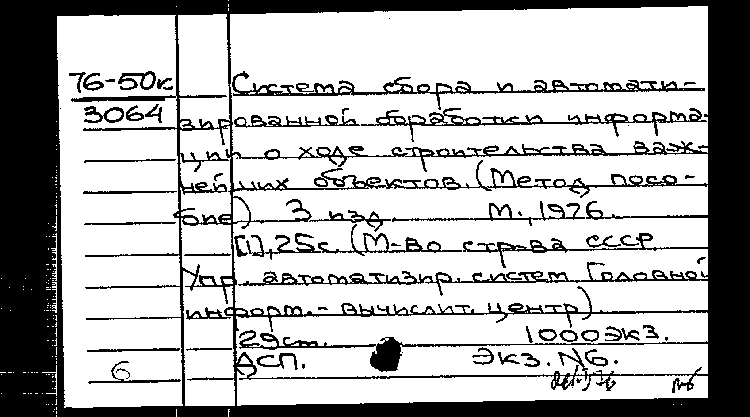 76-50к Система сбора и автомати-
3064 зированной обработки информа-
ции о ходе строительства важ-
нейших объектов. (Метод. посо-
бие). 3 изд. М., 1976.
[1], 25с (М-во стр-ва СССР
Упр. автоматизир. систем Головной
информ.- вычислит. центр)
29см. 1000экз.
6 ДСП. Экз. N6.